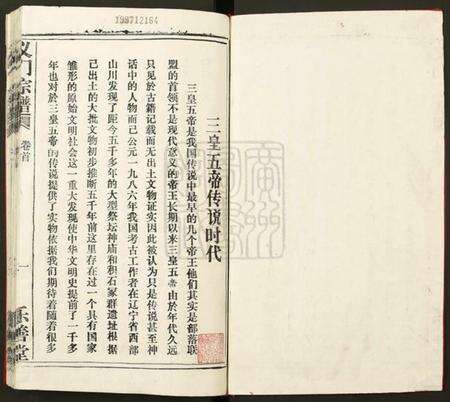 198712164
三皇五帝传说时代
三皇五帝是我国传说中最早的几个帝王他们其实是部落联
盟的首领不是现代意义的帝王长期以来三皇五帝由於年代久远
只见於古籍记载而无出土文物证实因此被认为只是传说甚至神
话中的人物而已公元一九八六年我国考古工作者在辽宁省西部
山川发现了距今五千多年的大型祭坛神庙和积石冢群遗址根据
已出土的大批文物初步推断五千年前这里存在过一个具有国家
雏形的原始文明社会这一重大发现使中华文明史提前了一千多
年也对於三皇五帝的传说提供了实物依据我们期待着随着很多
门宗谱
卷首
一
乐善堂